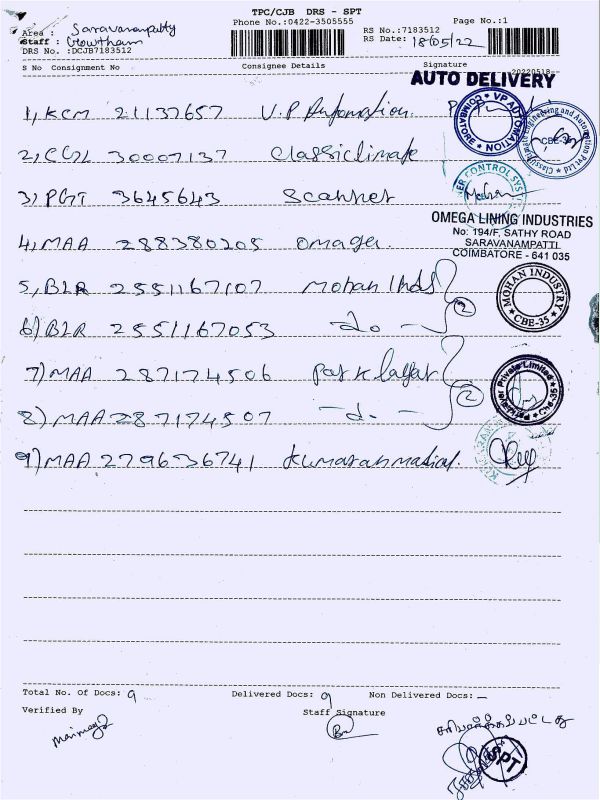 TPC/CJB DRS - SPT
Phone No.:0422-3505555 Page No.:1
Area : Saravanampatty
Staff : Gowtham
RS No.:7183512
RS Date: 18/05/22
DRS No. :DCJB7183512
S No Consignment No Consignee Details Signature
20220518
AUTO DELIVERY
1, KCM 21137657 V.P Automation
VP AUTOMATION COIMBATORE
Classiclimate Engineering and Automation Pvt Ltd CBE-35
2, CGL 30007137 Classiclimate
3) PGT 3645643 Scanner
CONTROL SYS
OMEGA LINING INDUSTRIES
No: 194/F, SATHY ROAD
SARAVANAMPATTI
COIMBATORE - 641 035
4, MAA 288380205 Omager
5, BLR 2551167107 Mohan Inds
MOHAN INDUSTRY CBE-35
6) BLR 2551167053 - do - 2
7) MAA 287174506
Private Limited Cbe-35
8) MAA 287174507 - do - 2
9) MAA 279636741 Kumaran madical.
Total No. Of Docs: 9 Delivered Docs: 9 Non Delivered Docs: -
Verified By Staff Signature
சரிபார்க்கப்பட்டது
SPT